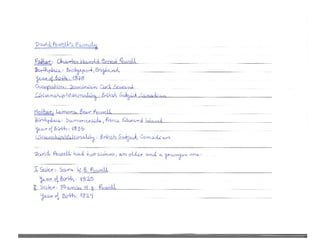 David Powell's Family
Father: Charles Harold Ernest Powell
Birthplace: Bridgeport, England
Year of Birth:
Occupation: Dominion Civil Servant
Citizenship/Nationality: British Subject Canadian
Mother: Powell
Birthplace: Summerside, Prince Edward Island
Year of Birth:
Citizenship/Nationality: British Subject Canadian
David Powell had two sisters, an older and a younger one.
I Sister: Sara Powell
Year of Birth: 1920
II Sister: Frances M. Powell
Year of Birth: 1924